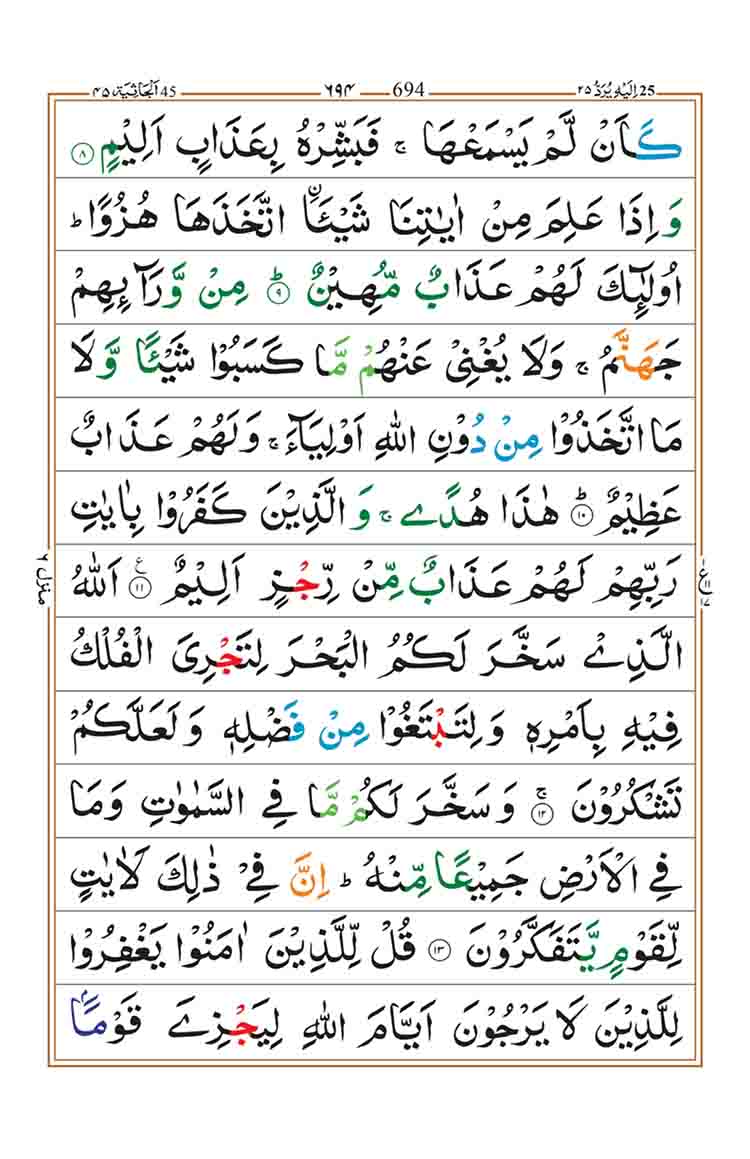 ٤٥ اَلْجَاثِيَة 45 ٦٩٤ 694 ٢٥ اِلَيْهِ يُرَدُّ 25
كَاَنْ لَّمْ يَسْمَعْهَا ۚ فَبَشِّرْهُ بِعَذَابٍ اَلِيْمٍ ٨
وَ اِذَا عَلِمَ مِنْ اٰيٰتِنَا شَيْـَٔاۨ اتَّخَذَهَا هُزُوًا ؕ
اُولٰٓئِكَ لَهُمْ عَذَابٌ مُّهِيْنٌ ؕ ٩ مِنْ وَّرَآئِهِمْ
جَهَنَّمُ ۚ وَلَا يُغْنِيْ عَنْهُمْ مَّا كَسَبُوْا شَيْـًٔا وَّلَا
مَا اتَّخَذُوْا مِنْ دُوْنِ اللّٰهِ اَوْلِيَآءَ ۚ وَلَهُمْ عَذَابٌ
عَظِيْمٌ ؕ ١٠ هٰذَا هُدًے ۚ وَ الَّذِيْنَ كَفَرُوْا بِاٰيٰتِ
رَبِّهِمْ لَهُمْ عَذَابٌ مِّنْ رِّجْزٍ اَلِيْمٌ ١١ ع اَللّٰهُ
الَّذِےْ سَخَّرَ لَكُمُ الْبَحْرَ لِتَجْرِيَ الْفُلْكُ
فِيْهِ بِاَمْرِهٖ وَلِتَبْتَغُوْا مِنْ فَضْلِهٖ وَلَعَلَّكُمْ
تَشْكُرُوْنَ ۚ ١٢ وَسَخَّرَ لَكُمْ مَّا فِے السَّمٰوٰتِ وَمَا
فِے الْاَرْضِ جَمِيْعًا مِّنْهُ ؕ اِنَّ فِےْ ذٰلِكَ لَاٰيٰتٍ
لِّقَوْمٍ يَّتَفَكَّرُوْنَ ١٣ قُلْ لِّلَّذِيْنَ اٰمَنُوْا يَغْفِرُوْا
لِلَّذِيْنَ لَا يَرْجُوْنَ اَيَّامَ اللّٰهِ لِيَجْزِےَ قَوْمًۢا
منزل ٦
ع ١ ١١ ١٧